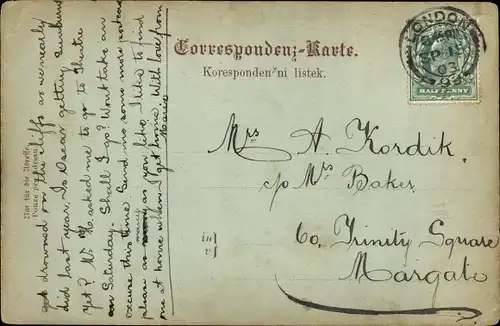 Correspondenz-Karte.
Korespondenční listek.
Nur für die Adresse
LONDON
03
HALF PENNY
Mrs A. Kordik
c/o Mrs Baker
60, Trinity Square
Margate
in
v
drowned on the cliffs as we nearly
did last year. Is Oscar getting Sunburnt
yet? Mr H asked me to go to Theatre
on Saturday. Shall I go? Wont take any
excuse this time. Send me some more postcards
please as many as you like. I like to find
one at home when I get home. With love from